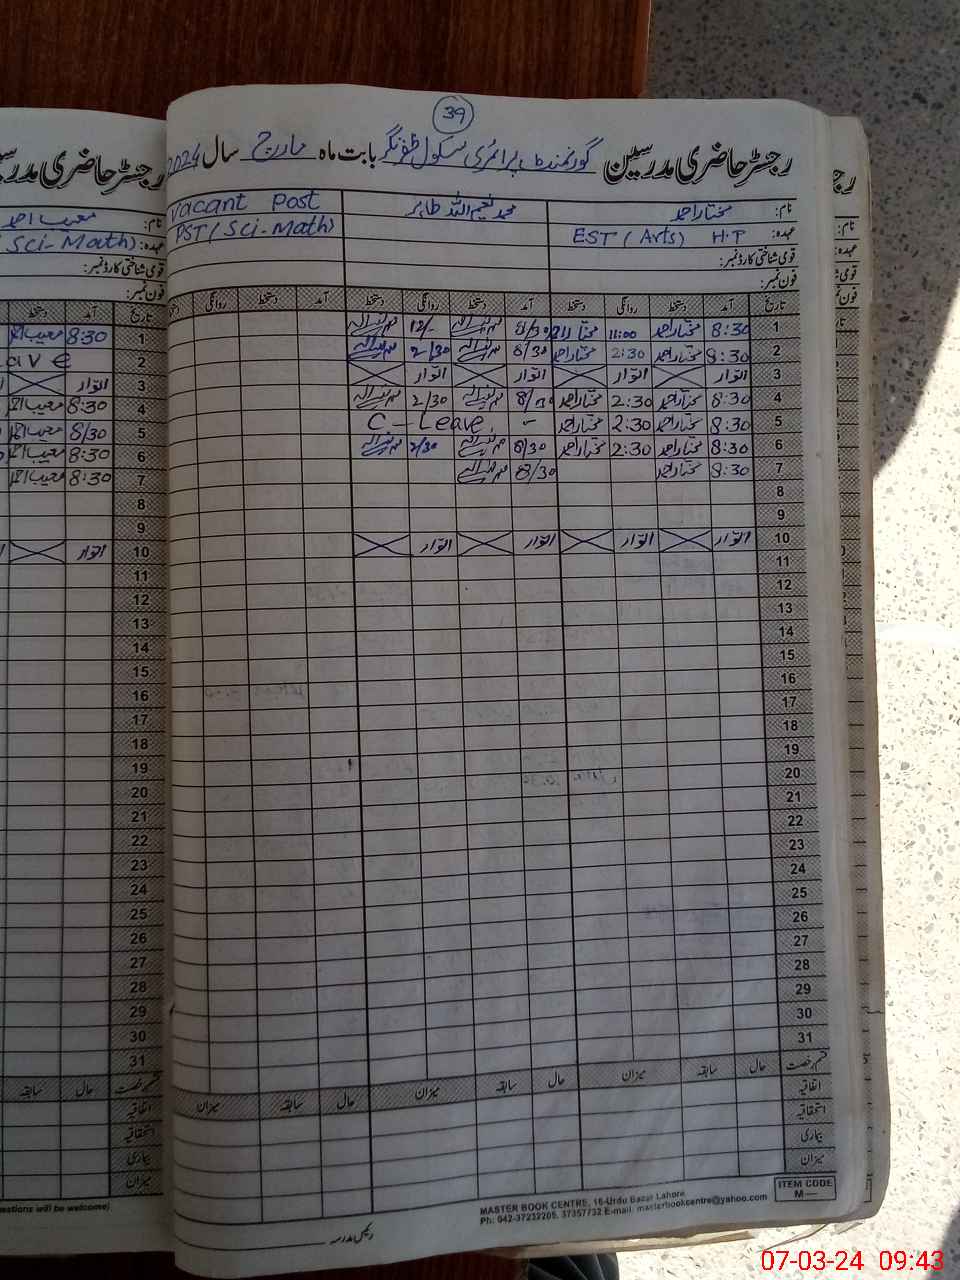 39
رجسٹر حاضری مدرسین گورنمنٹ پرائمری سکول ظفر نگر بابت ماہ مارچ سال 2024
نام: مختار احمد محمد نعیم اللہ طاہر Vacant Post
عہدہ: EST (Arts) H.T PST (Sci-Math)
قومی شناختی کارڈ نمبر:
فون نمبر:
تاریخ آمد دستخط روانگی دستخط آمد دستخط روانگی دستخط آمد دستخط روانگی
1 8:30 مختار احمد 11:00 مختار احمد 8/30 12/-
2 8:30 مختار احمد 2:30 مختار احمد 8/30 2/30
3 اتوار اتوار اتوار اتوار
4 8:30 مختار احمد 2:30 مختار احمد 8/30 2/30
5 8:30 مختار احمد 2:30 مختار احمد - C-Leave
6 8:30 مختار احمد 2:30 مختار احمد 8/30 2/30
7 8:30 مختار احمد 8/30
8
9
10 اتوار اتوار اتوار اتوار
11
12
13
14
15
16
17
18
19
20
21
22
23
24
25
26
27
28
29
30
31
قسم رخصت حال سابقہ میزان حال سابقہ میزان حال سابقہ میزان
اتفاقیہ
استحقاقیہ
بیماری
میزان
ITEM CODE
M —
MASTER BOOK CENTRE, 16-Urdu Bazar Lahore
Ph: 042-37232205, 37357732 E-mail: masterbookcentre@yahoo.com
رئیس مدرسہ
رجسٹر حاضری مدرسی
نام: معیب احمد
عہدہ: Sci-Math)
قومی شناختی کارڈ نمبر:
فون نمبر:
تاریخ آمد دستخط
1 8:30
2 ave
3 اتوار
4 8:30
5 8/30
6 8:30
7 8:30
8
9
10 اتوار
11
12
13
14
15
16
17
18
19
20
21
22
23
24
25
26
27
28
29
30
31
قسم رخصت حال سابقہ
اتفاقیہ
استحقاقیہ
بیماری
میزان
estions will be welcome)
07-03-24 09:43